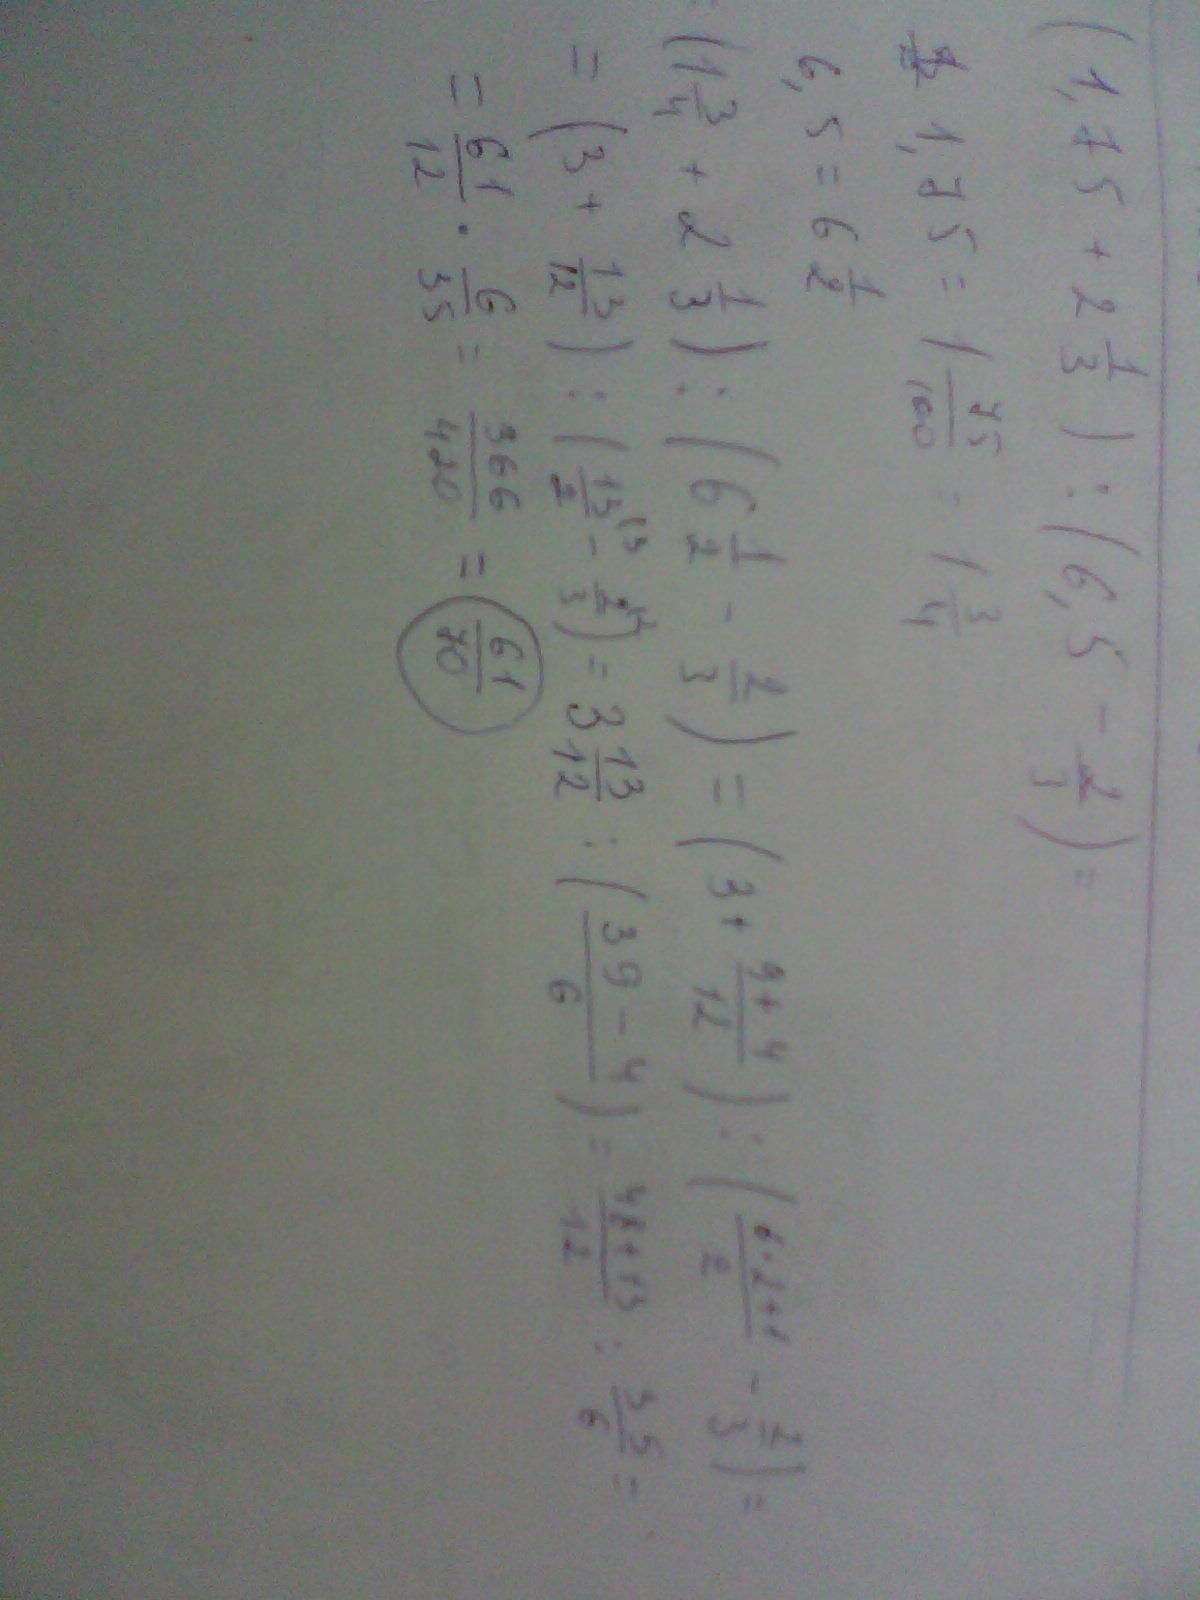 (1,75 + 2 1/3) : (6,5 - 2/3) =
1,75 = 1 75/100 = 1 3/4
6,5 = 6 1/2
= (1 3/4 + 2 1/3) : (6 1/2 - 2/3) = (3 + 9+4/12) : (6·2+1/2 - 2/3) =
= (3 + 13/12) : (13/2 - 2/3) = 3 13/12 : (39-4/6) = 48+13/12 : 35/6 =
= 61/12 · 6/35 = 366/420 = 61/70